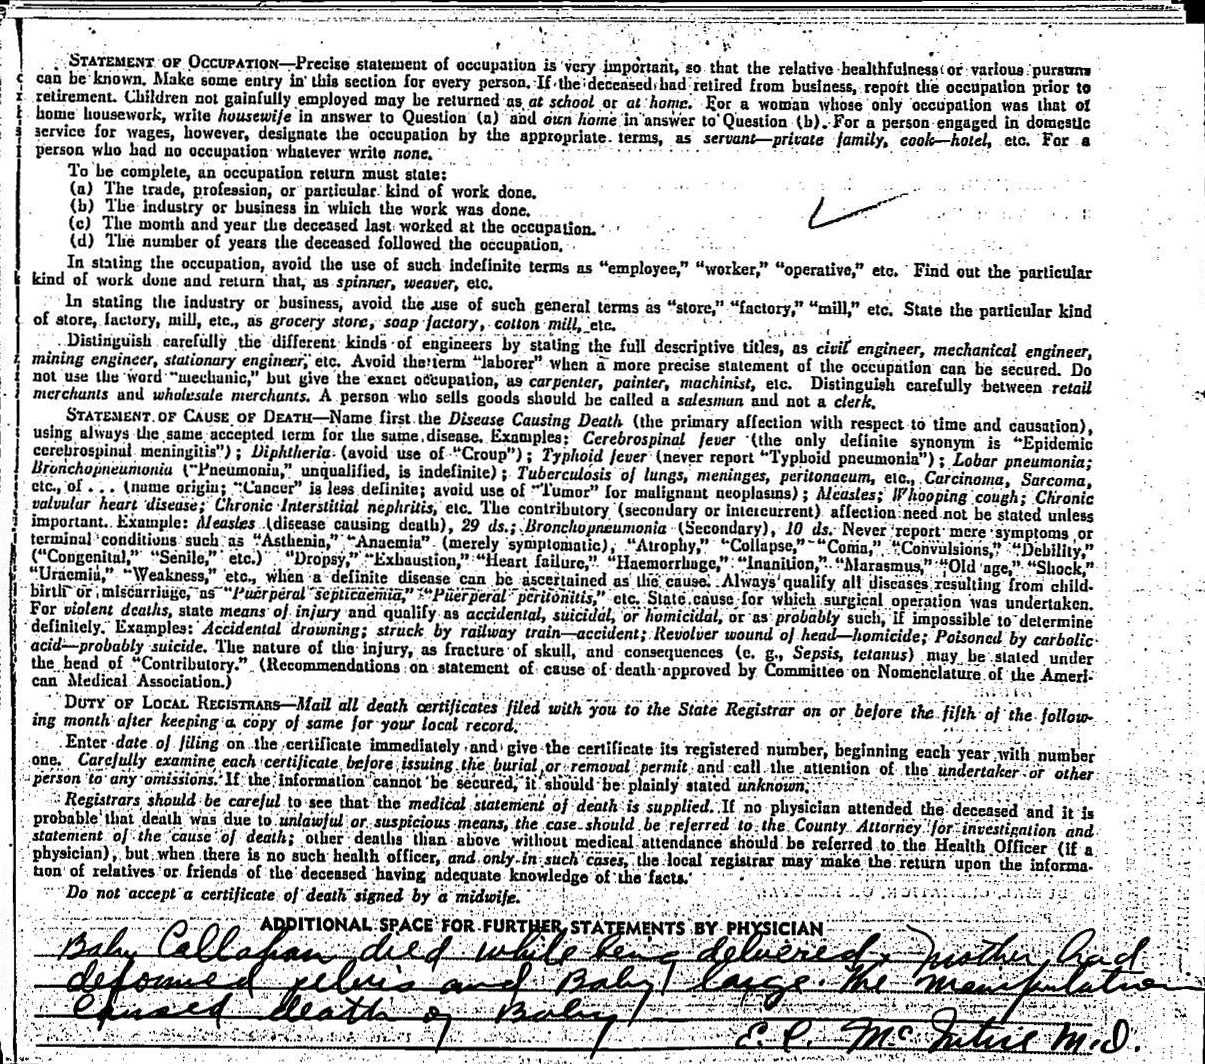 STATEMENT OF OCCUPATION—Precise statement of occupation is very important, so that the relative healthfulness or various pursuits
can be known. Make some entry in this section for every person. If the deceased had retired from business, report the occupation prior to
retirement. Children not gainfully employed may be returned as at school or at home. For a woman whose only occupation was that of
home housework, write housewife in answer to Question (a) and own home in answer to Question (b). For a person engaged in domestic
service for wages, however, designate the occupation by the appropriate terms, as servant—private family, cook—hotel, etc. For a
person who had no occupation whatever write none.
To be complete, an occupation return must state:
(a) The trade, profession, or particular kind of work done.
(b) The industry or business in which the work was done.
(c) The month and year the deceased last worked at the occupation.
(d) The number of years the deceased followed the occupation.
In stating the occupation, avoid the use of such indefinite terms as “employee,” “worker,” “operative,” etc. Find out the particular
kind of work done and return that, as spinner, weaver, etc.
In stating the industry or business, avoid the use of such general terms as “store,” “factory,” “mill,” etc. State the particular kind
of store, factory, mill, etc., as grocery store, soap factory, cotton mill, etc.
Distinguish carefully the different kinds of engineers by stating the full descriptive titles, as civil engineer, mechanical engineer,
mining engineer, stationary engineer, etc. Avoid the term “laborer” when a more precise statement of the occupation can be secured. Do
not use the word “mechanic,” but give the exact occupation, as carpenter, painter, machinist, etc. Distinguish carefully between retail
merchants and wholesale merchants. A person who sells goods should be called a salesman and not a clerk.
STATEMENT OF CAUSE OF DEATH—Name first the Disease Causing Death (the primary affection with respect to time and causation),
using always the same accepted term for the same disease. Examples: Cerebrospinal fever (the only definite synonym is “Epidemic
cerebrospinal meningitis”); Diphtheria (avoid use of “Croup”); Typhoid fever (never report “Typhoid pneumonia”); Lobar pneumonia;
Bronchopneumonia (“Pneumonia,” unqualified, is indefinite); Tuberculosis of lungs, meninges, peritonaeum, etc., Carcinoma, Sarcoma,
etc., of . . . (name origin; “Cancer” is less definite; avoid use of “Tumor” for malignant neoplasms); Measles; Whooping cough; Chronic
valvular heart disease; Chronic Interstitial nephritis, etc. The contributory (secondary or intercurrent) affection need not be stated unless
important. Example: Measles (disease causing death), 29 ds.; Bronchopneumonia (Secondary), 10 ds. Never report mere symptoms or
terminal conditions such as “Asthenia,” “Anaemia” (merely symptomatic), “Atrophy,” “Collapse,” “Coma,” “Convulsions,” “Debility,”
(“Congenital,” “Senile,” etc.) “Dropsy,” “Exhaustion,” “Heart failure,” “Haemorrhage,” “Inanition,” “Marasmus,” “Old age,” “Shock,”
“Uraemia,” “Weakness,” etc., when a definite disease can be ascertained as the cause. Always qualify all diseases resulting from child-
birth or miscarriage, as “Puerperal septicaemia,” “Puerperal peritonitis,” etc. State cause for which surgical operation was undertaken.
For violent deaths, state means of injury and qualify as accidental, suicidal, or homicidal, or as probably such, if impossible to determine
definitely. Examples: Accidental drowning; struck by railway train—accident; Revolver wound of head—homicide; Poisoned by carbolic
acid—probably suicide. The nature of the injury, as fracture of skull, and consequences (e. g., Sepsis, tetanus) may be stated under
the head of “Contributory.” (Recommendations on statement of cause of death approved by Committee on Nomenclature of the Ameri-
can Medical Association.)
DUTY OF LOCAL REGISTRARS—Mail all death certificates filed with you to the State Registrar on or before the fifth of the follow-
ing month after keeping a copy of same for your local record.
Enter date of filing on the certificate immediately and give the certificate its registered number, beginning each year with number
one. Carefully examine each certificate before issuing the burial or removal permit and call the attention of the undertaker or other
person to any omissions. If the information cannot be secured, it should be plainly stated unknown.
Registrars should be careful to see that the medical statement of death is supplied. If no physician attended the deceased and it is
probable that death was due to unlawful or suspicious means, the case should be referred to the County Attorney for investigation and
statement of the cause of death; other deaths than above without medical attendance should be referred to the Health Officer (if a
physician), but when there is no such health officer, and only in such cases, the local registrar may make the return upon the informa-
tion of relatives or friends of the deceased having adequate knowledge of the facts.
Do not accept a certificate of death signed by a midwife.
ADDITIONAL SPACE FOR FURTHER STATEMENTS BY PHYSICIAN
Baby Callahan died while being delivered, Mother had
deformed pelvis and Baby large. The manipulation
caused death of Baby
E. P. McIntire M.D.